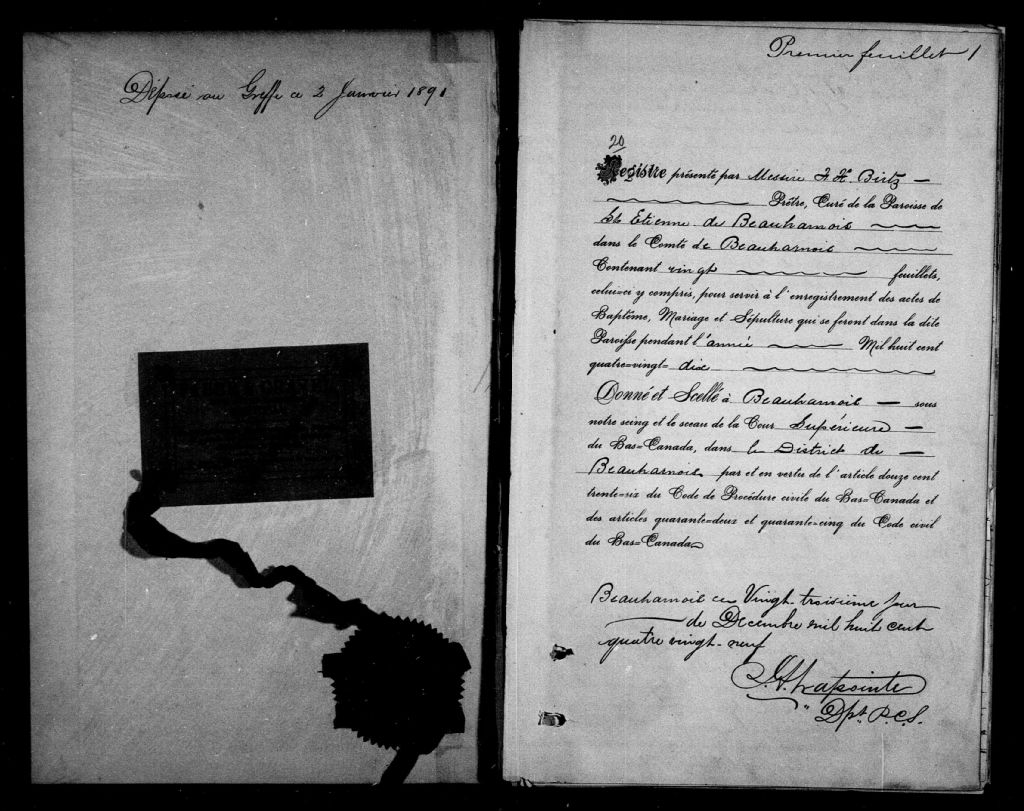 Déposé au Greffe ce 2 Janvier 1891
Premier feuillet 1
20
Registre présenté par Messire F. X. Birtz
Prêtre, Curé de la Paroisse de
St Etienne de Beauharnois
dans le Comté de Beauharnois
Contenant vingt feuillets,
celui=ci y compris, pour servir à l'enregistrement des actes de
Baptême, Mariage et Sépulture qui se feront dans la dite
Paroisse pendant l'année Mil huit cent
quatre=vingt= dix
Donné et Scellé à Beauharnois sous
notre seing et le sceau de la Cour Supérieure
du Bas=Canada, dans le District de
Beauharnois par et en vertu de l'article douze cent
trente=six du Code de Procédure civile du Bas=Canada et
des articles quarante=deux et quarante=cinq du Code civil
du Bas=Canada
Beauharnois ce Vingt troisième jour
de Decembre mil huit cent
quatre vingt-neuf
Lapointe
Dpt. P.C.S.